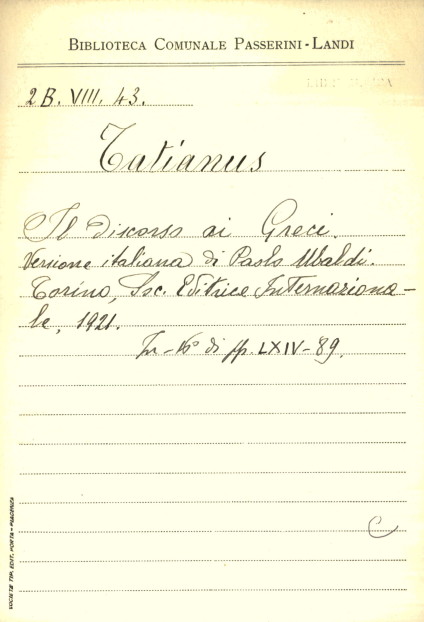 BIBLIOTECA COMUNALE PASSERINI-LANDI
2B. VIII. 43.
Tatianus
Il discorso ai Greci.
Versione italiana di Paolo Ubaldi.
Torino, Soc. Editrice Internaziona-
le, 1921.
In-16° di pp. LXIV-89.
C
SOCIETÀ TIP. EDIT. PORTA - PIACENZA